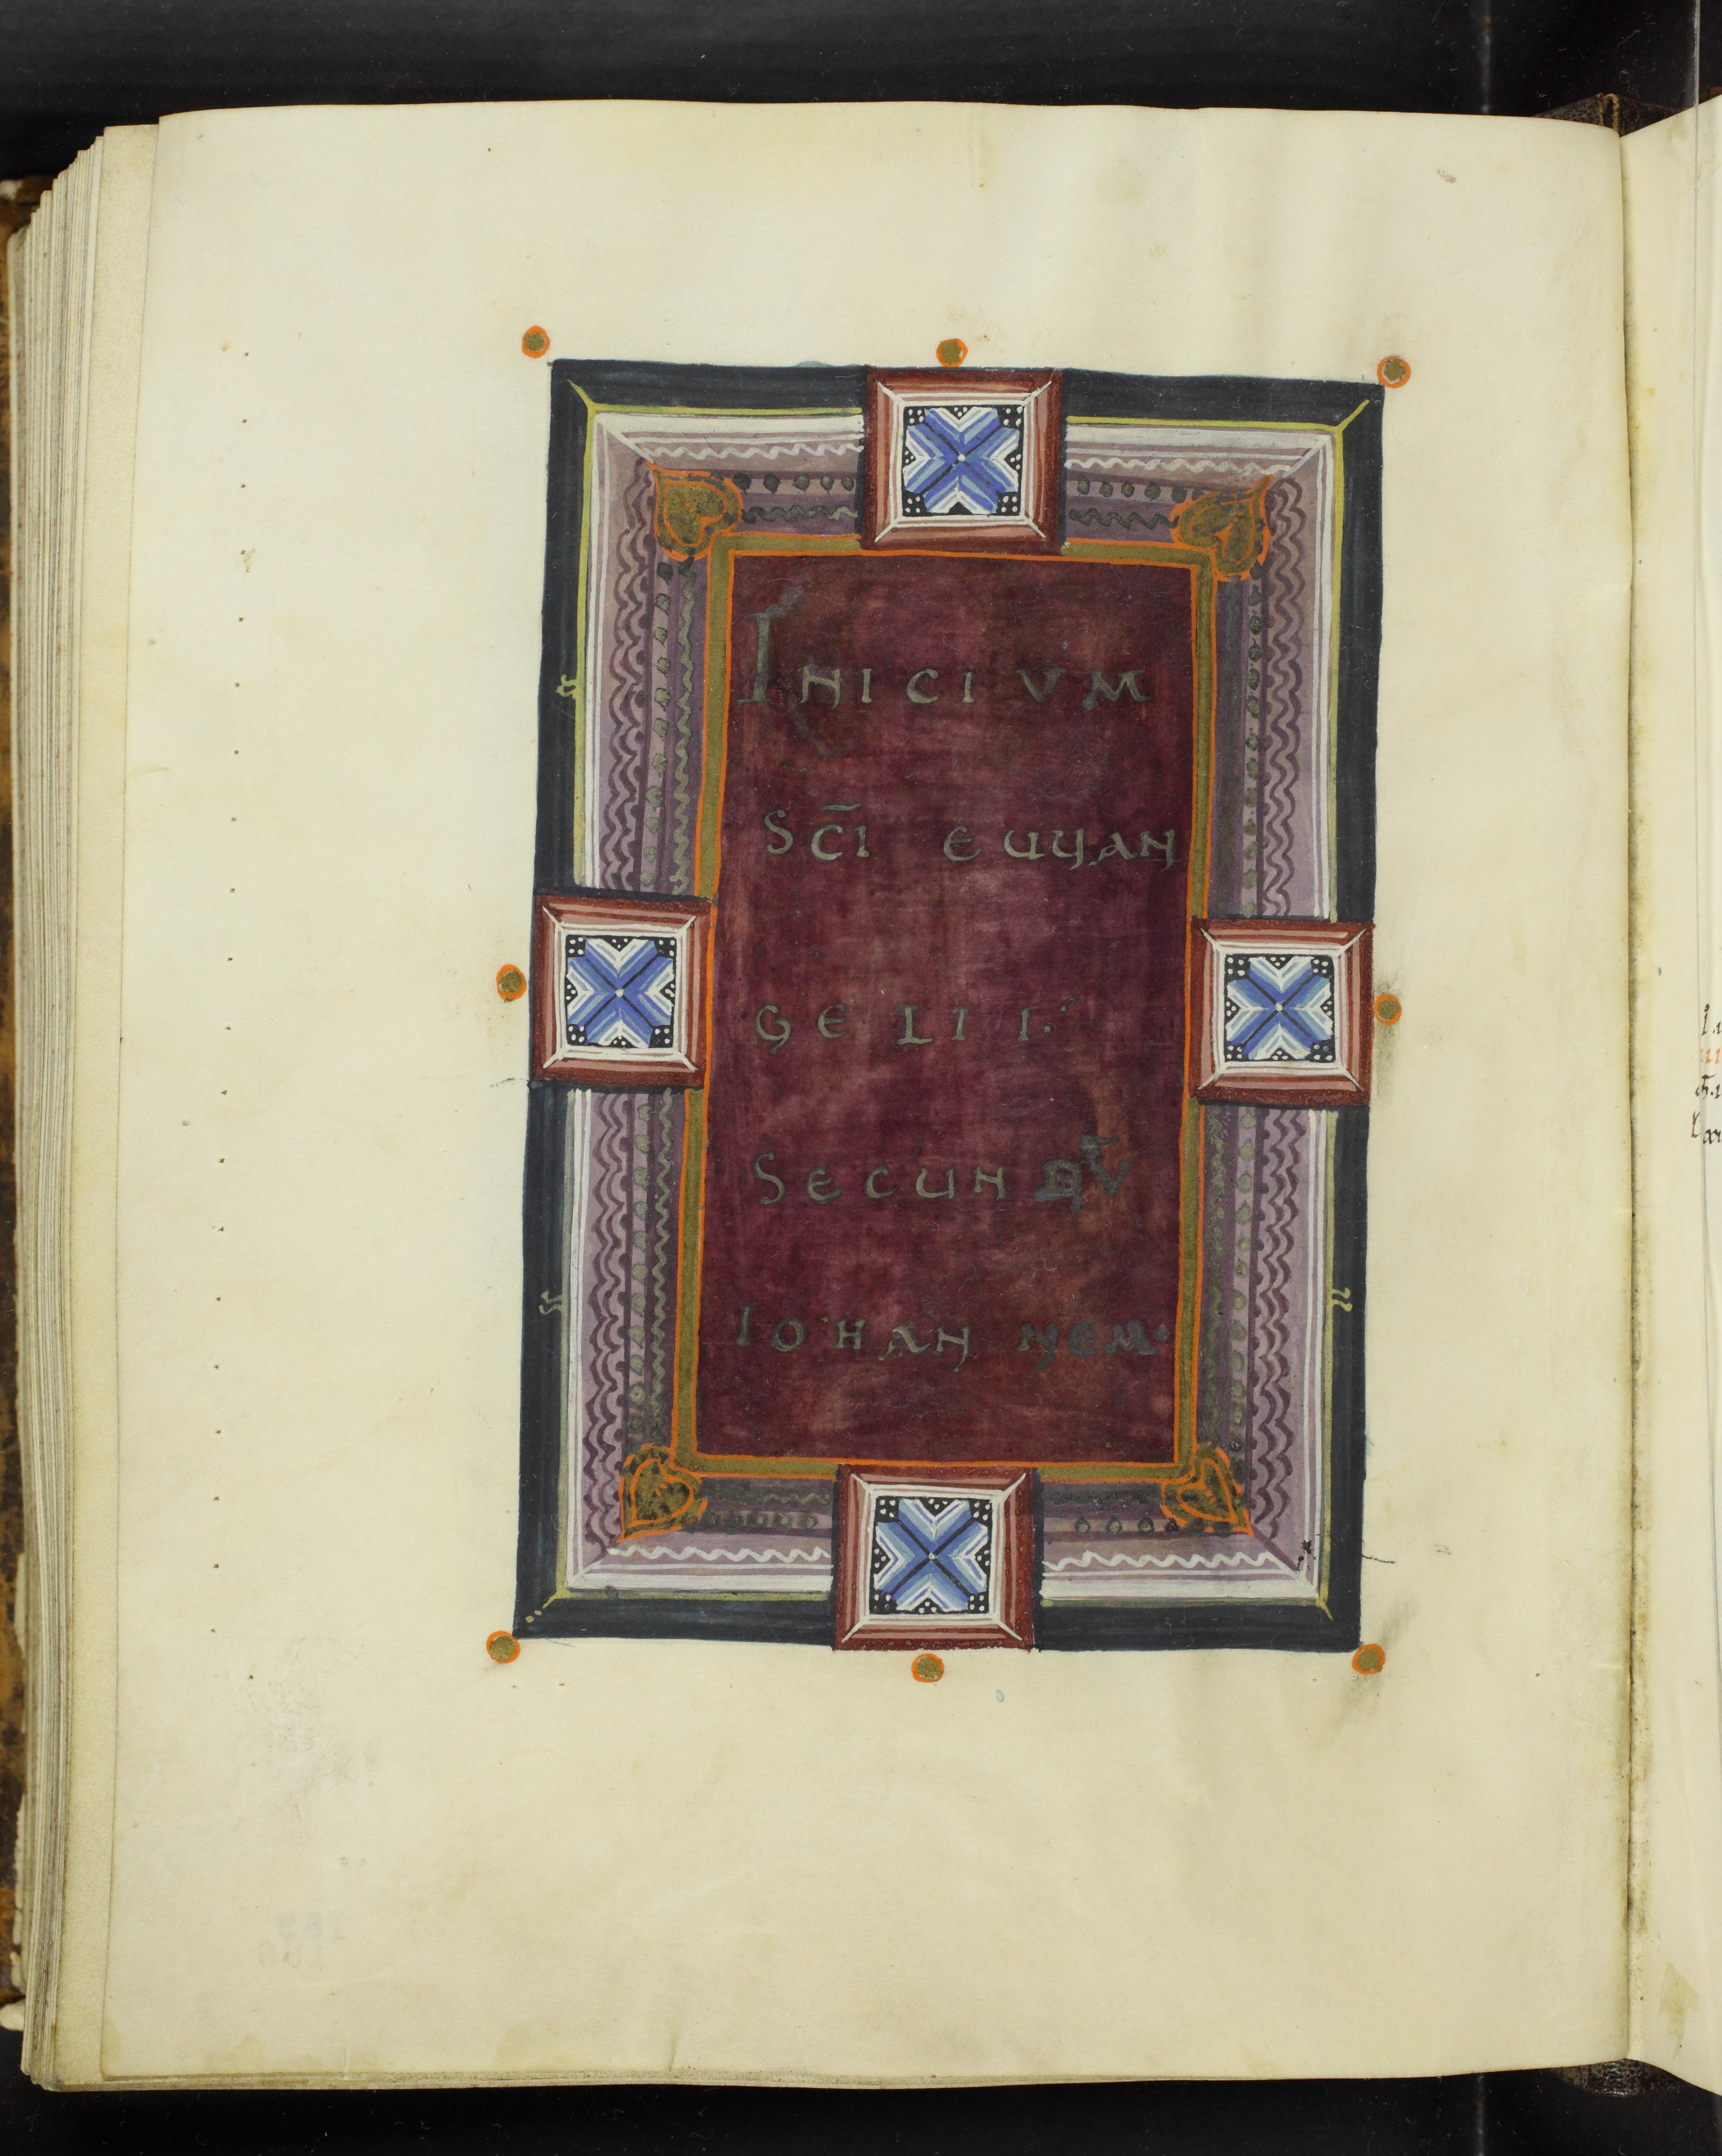 INICIUM
SC̅I EUUAN
GELII·
SECUNDU̅
IOHANNEM·